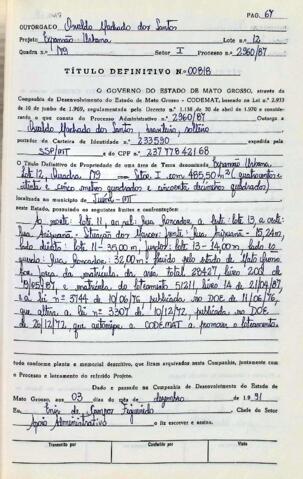 PAG. 67
OUTORGADO Osvaldo Machado dos Santos
Projeto Expansão Urbana Lote n.º 12
Quadra n.º M9 Setor I Processo n.º 2960/87
TÍTULO DEFINITIVO N.º 00818
O GOVERNO DO ESTADO DE MATO GROSSO, através da
Companhia de Desenvolvimento do Estado de Mato Grosso - CODEMAT, com base na Lei n.º 2.933
de 10 de junho de 1969, regulamentada pelo Decreto n.º 1.138 de 30 de abril de 1970 e considerando
o que consta do Processo Administrativo n.º 2960/87 Outorga a
Osvaldo Machado dos Santos brasileiro, solteiro
portador da Carteira de Identidade n.º 233590 expedida pela
SSP/MT e do CPF n.º 237778421.68
O Título Definitivo de Propriedade de uma área de Terra denominada Expansão Urbana
Lote 12, Quadra M9 com Setor I com 485,50 m² (quatrocentos e
oitenta e cinco metros quadrados e cinquenta decímetros quadrados)
localizada no município de
neste Estado, possuindo os seguintes limites e confrontações:
ao norte: lote 11, ao sul: Rua Roncador, a leste: lote 13, a oeste:
Rua Aripuanã. Situação dos Marcos: frente: Rua Aripuanã - 15,24m,
lado direito: lote 11 - 35,00 m, fundos: lote 13 - 14,00 m, lado es-
querdo: Rua Roncador, 32,00 m. Havido pelo Estado de Mato Grosso
por força da matrícula da área total 28427, livro 2
e matrícula do loteamento 51211 livro de 21/04/87,
e a lei nº 3744 de 10/06/76, publicada no DOE de 11/06/76,
que altera a lei nº 3307 de 10/12/72, publicada no DOE
de 20/12/72, que autoriza a CODEMAT a promover o loteamento.
tudo conforme planta e memorial descritivo, que ficam arquivados nesta Companhia, juntamente com
o Processo e loteamento do referido Projeto.
Dado e passado na Companhia de Desenvolvimento do Estado de
Mato Grosso, aos 03 dias do mês de dezembro de 1991
Eu, de Campos Figueiredo, Chefe do Setor
Apoio Administrativo o fiz escrever e assino.
Transcrito por Conferido por Visto